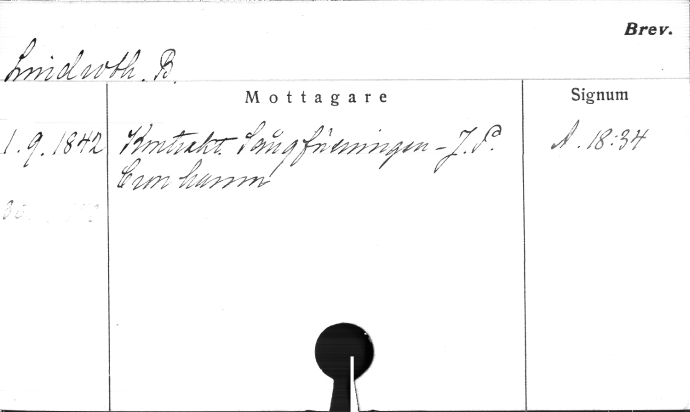 Brev.
Lindroth. B.
Mottagare
Signum
1.9.1842 Kontrakt. Sångföreningen - J. P. A. 18:34
Cronhamn